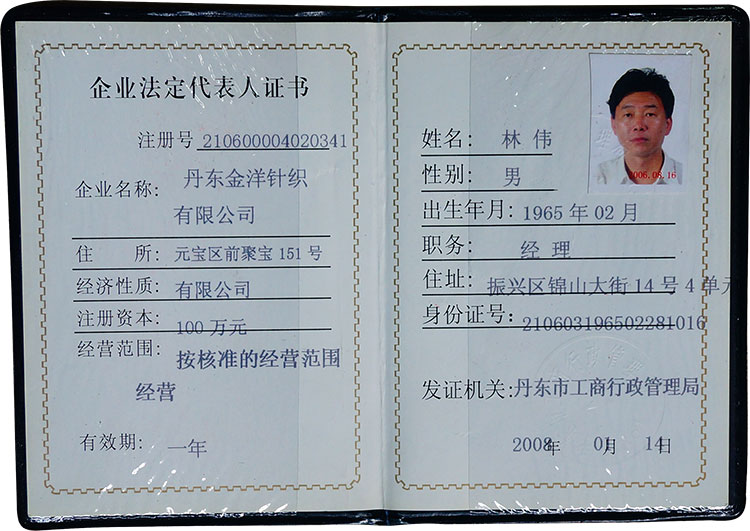 企业法定代表人证书
注册号 210600004020341
企业名称: 丹东金洋针织
有限公司
住 所: 元宝区前聚宝151号
经济性质: 有限公司
注册资本: 100万元
经营范围: 按核准的经营范围
经营
有效期: 一年
2006.08.16
姓名: 林伟
性别: 男
出生年月: 1965年02月
职务: 经理
住址: 振兴区锦山大街14号4单元
身份证号: 210603196502281016
发证机关: 丹东市工商行政管理局
2008年 01月 14日